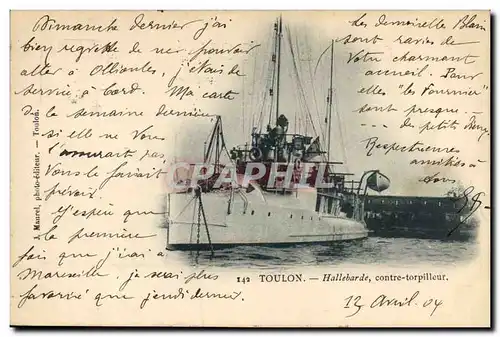 Dimanche dernier j'ai
bien regretté de ne pouvoir
aller à Ollioules, j'étais de
service à bord. Ma carte
de la semaine dernière
si elle ne vous
l'aurait pas
vous le faisait
prévoir
J'espère que
la première
fois que j'irai à
Marseille, je serai plus
favorisé que Dimanche dernier.
les demoiselles Blain
sont ravies de
votre charmant
accueil. Pour
elles "les Fournier"
sont presque
des petits
Respectueuses
amitiés à
tous
J. Maurel, photo-éditeur. — Toulon.
CPARAMA
142 TOULON. — Hallebarde, contre-torpilleur.
12 Avril 04